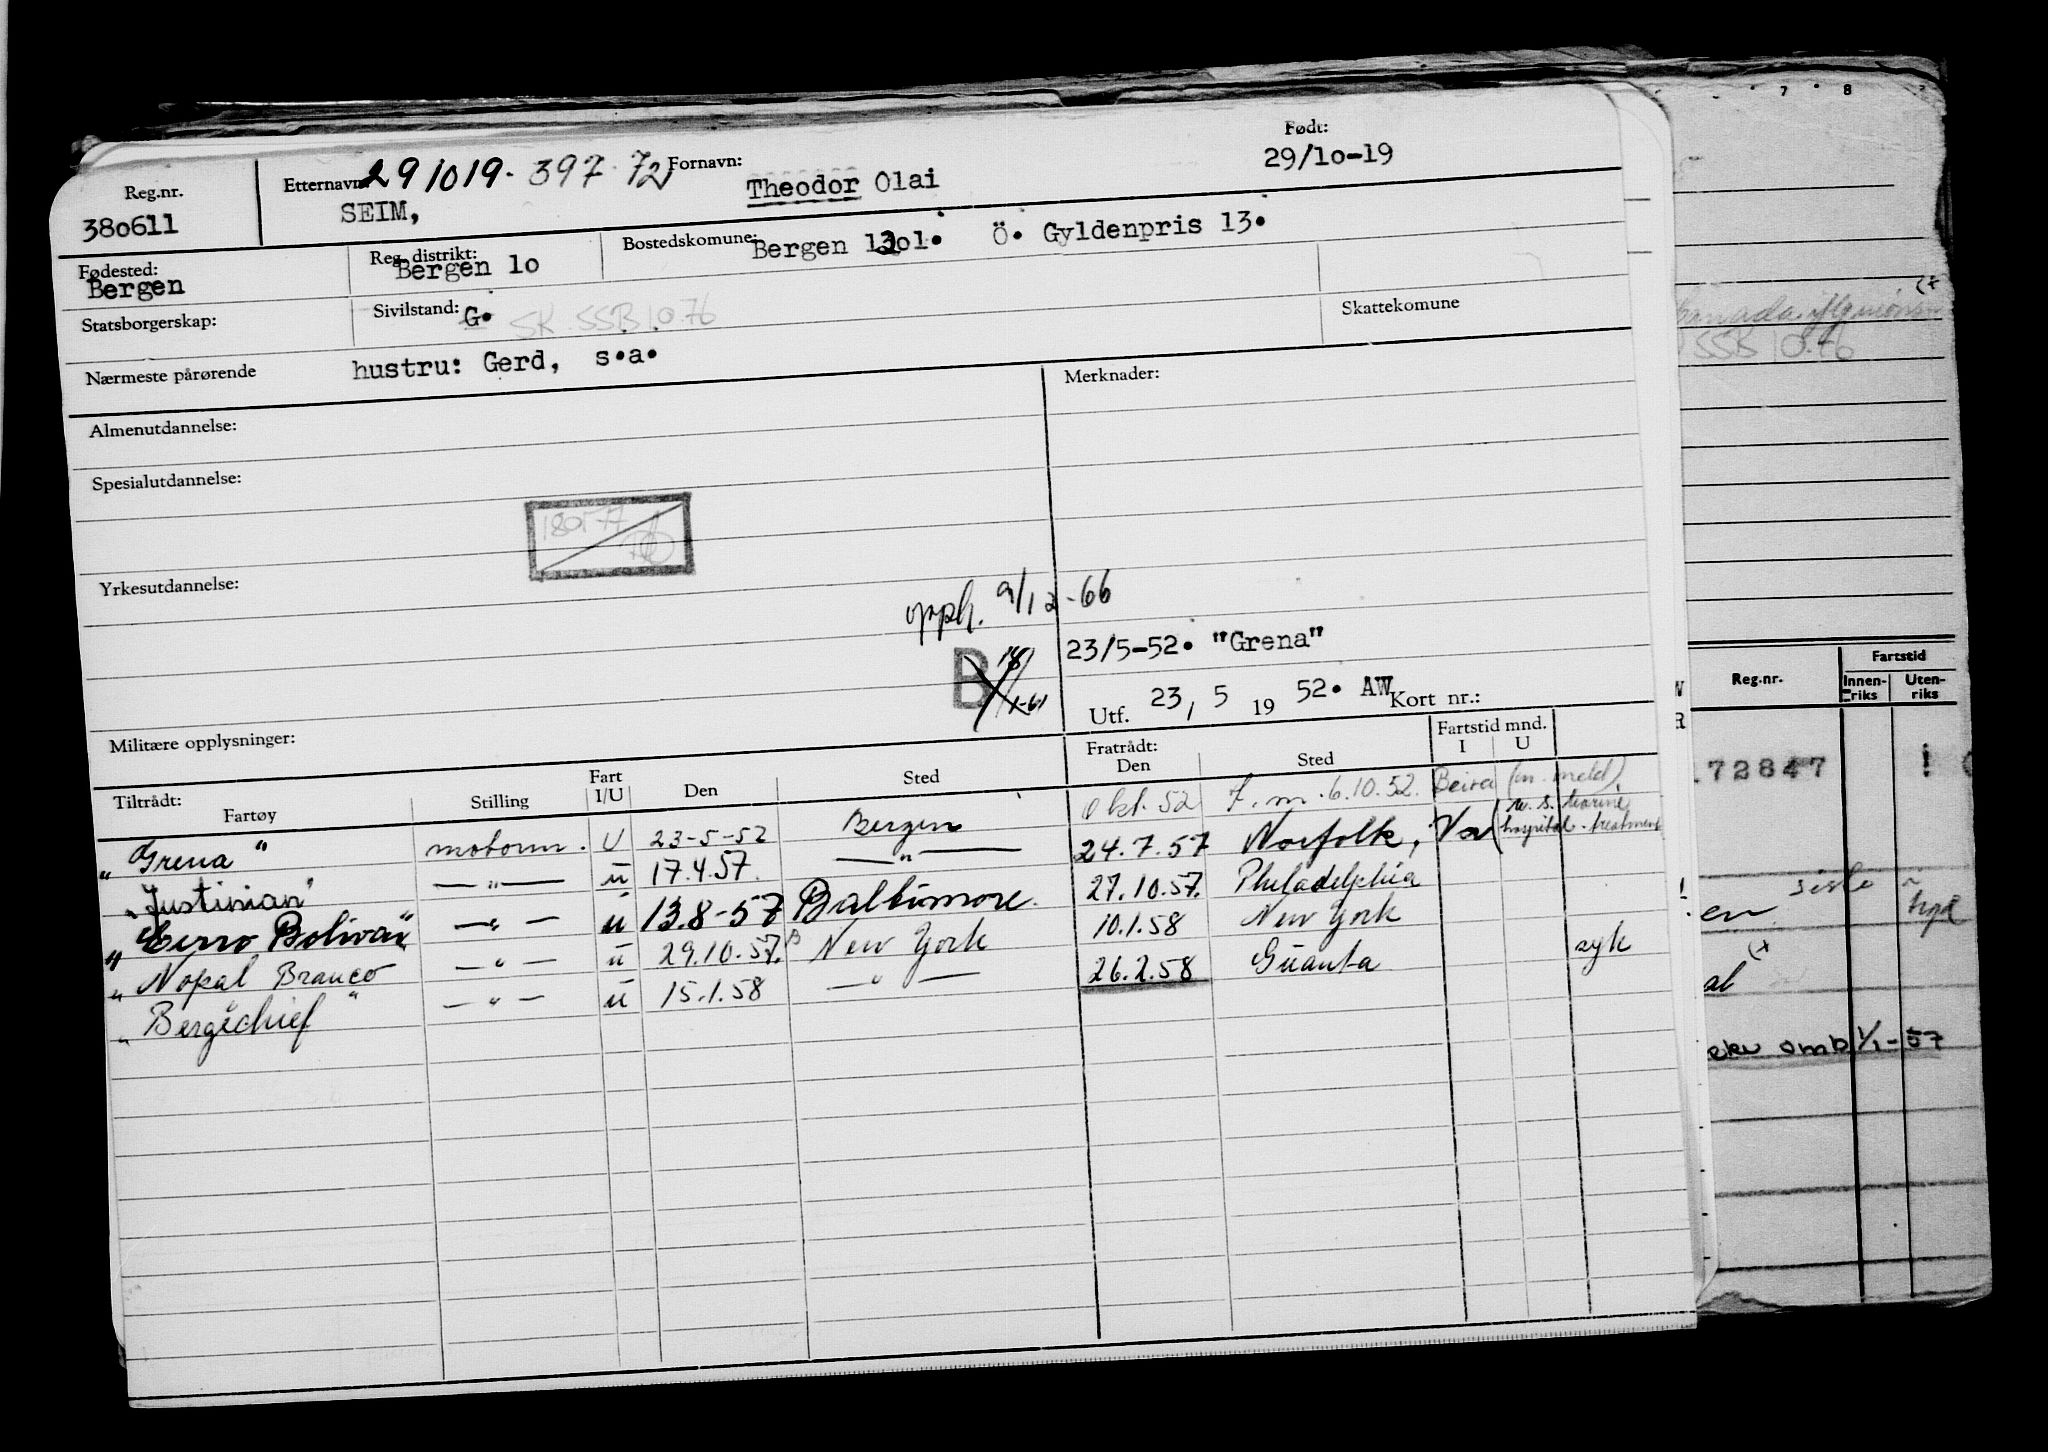 Født:
29/10-19
Reg.nr.
380611
Etternavn:
291019-397 72
SEIM,
Fornavn:
Theodor Olai
Fødested:
Bergen
Reg. distrikt:
Bergen 10
Bostedskomune:
Bergen 1301. Ö. Gyldenpris 13.
Statsborgerskap:
Sivilstand: G.
SK. SSB 10.76
Skattekomune
Nærmeste pårørende hustru: Gerd, s.a.
Almenutdannelse:
Merknader:
Spesialutdannelse:
Yrkesutdannelse:
opph. 9/12-66
B
23/5-52. "Grena"
Utf. 23, 5 19 52. AW Kort nr.:
Militære opplysninger:
Tiltrådt:
Fartøy Stilling Fart I/U Den Sted
Fratrådt: Den Sted Fartstid mnd. I U
"Grena" motorm. U 23-5-52 Bergen okt. 52 F.m. 6.10.52. Beira (m. meld)
"Justinian" —"— u 17.4.57. —"— 24.7.57 Norfolk, Va (u. s. marine hospital. treatment
"Cerro Bolivar" —"— u 13.8-57 Baltimore 27.10.57. Philadelphia
"Nopal Branco —"— u 29.10.57. New York 10.1.58 New York
"Bergechief" —"— u 15.1.58 —"— 26.2.58 Guanta syk
7 8
SSB 10.76
Reg.nr. Fartstid
Innen-riks Uten-riks
72847
siste
en
al
omb 1/1-57